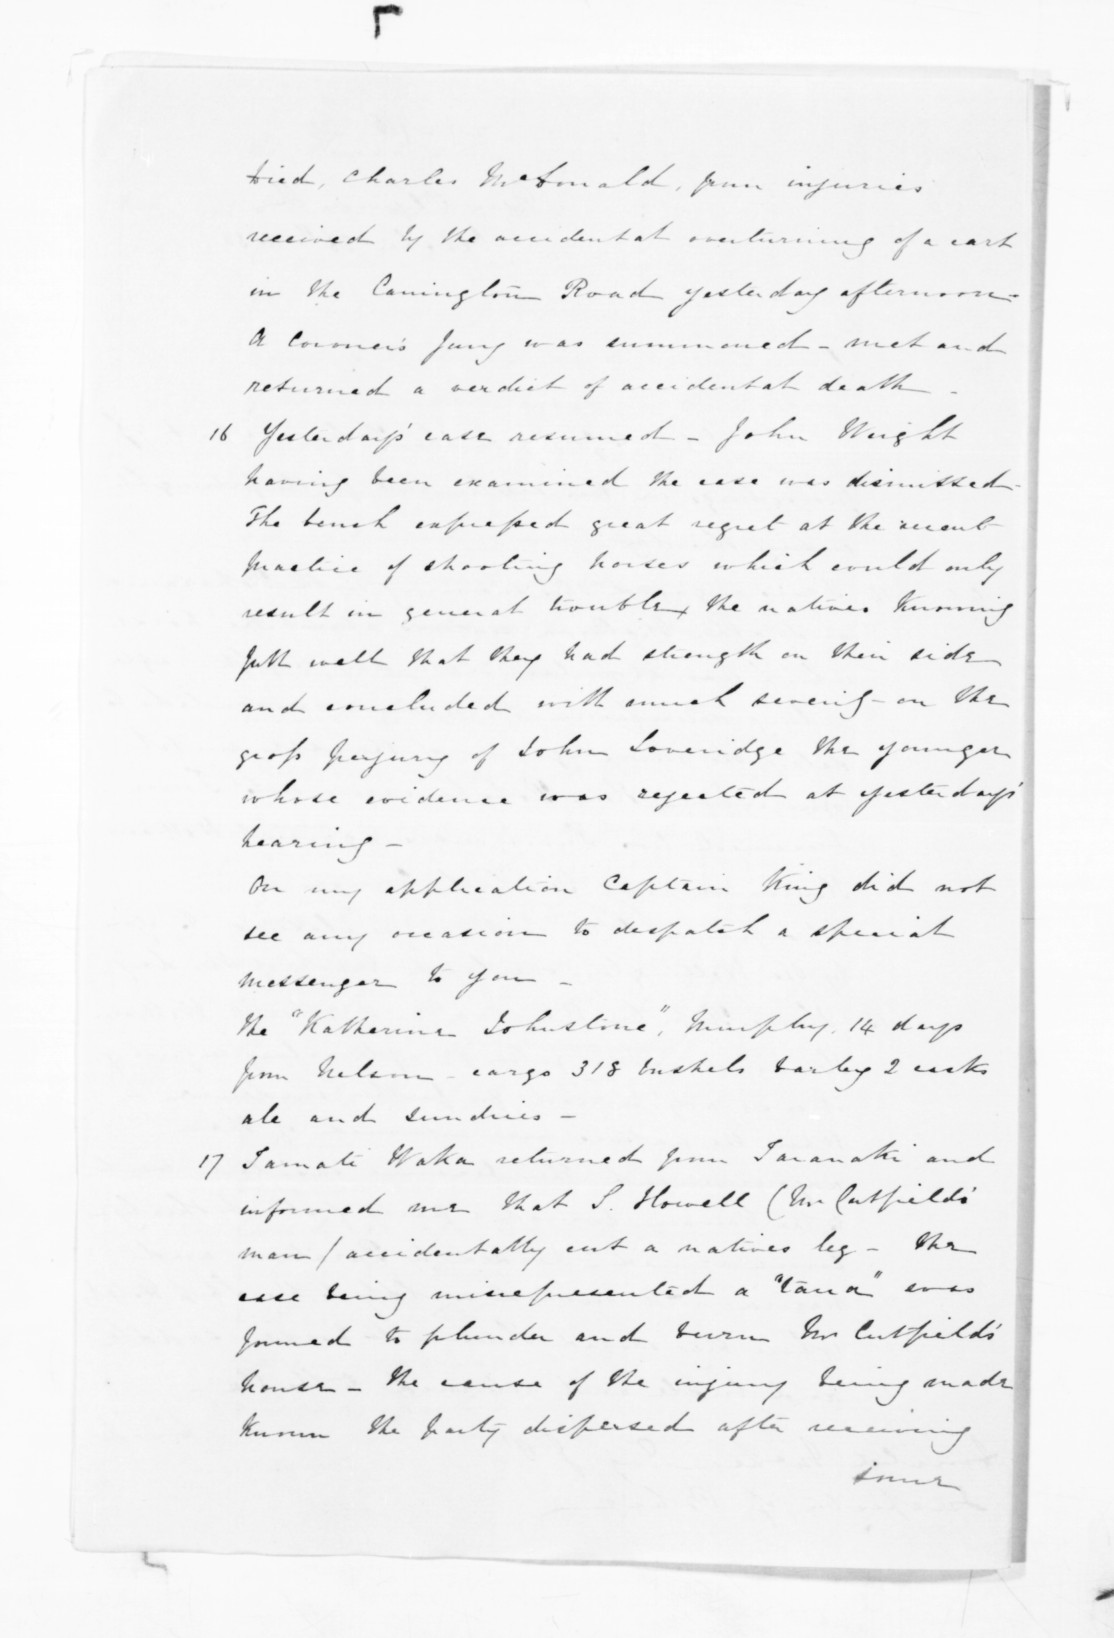 Died, Charles McDonald, from injuries
received by the accidental overturning of a cart
in the Carrington Road yesterday afternoon -
A Coroner's Jury was summoned - met and
returned a verdict of accidental death -
16 Yesterday's case resumed - John Wright
having been examined the case was dismissed -
The bench expressed great regret at the recent
practice of shooting horses which could only
result in general trouble, the natives knowing
full well that they had strength on their side
and concluded with much severity on the
gross perjury of John Loveridge the younger
whose evidence was rejected at yesterday's
hearing -
On my application Captain King did not
see any occasion to despatch a special
messenger to you -
The "Katherine Johnstone", Murphy, 14 days
from Nelson - cargo 318 bushels barley 2 casks
ale and sundries -
17 Tamati Waka returned from Taranaki and
informed me that S. Howell (Mr Cutfield's
man) accidentally cut a natives leg - the
case being misrepresented a "taua" was
formed to plunder and burn Mr Cutfield's
house - the cause of the injury being made
known the party dispersed after receiving
some